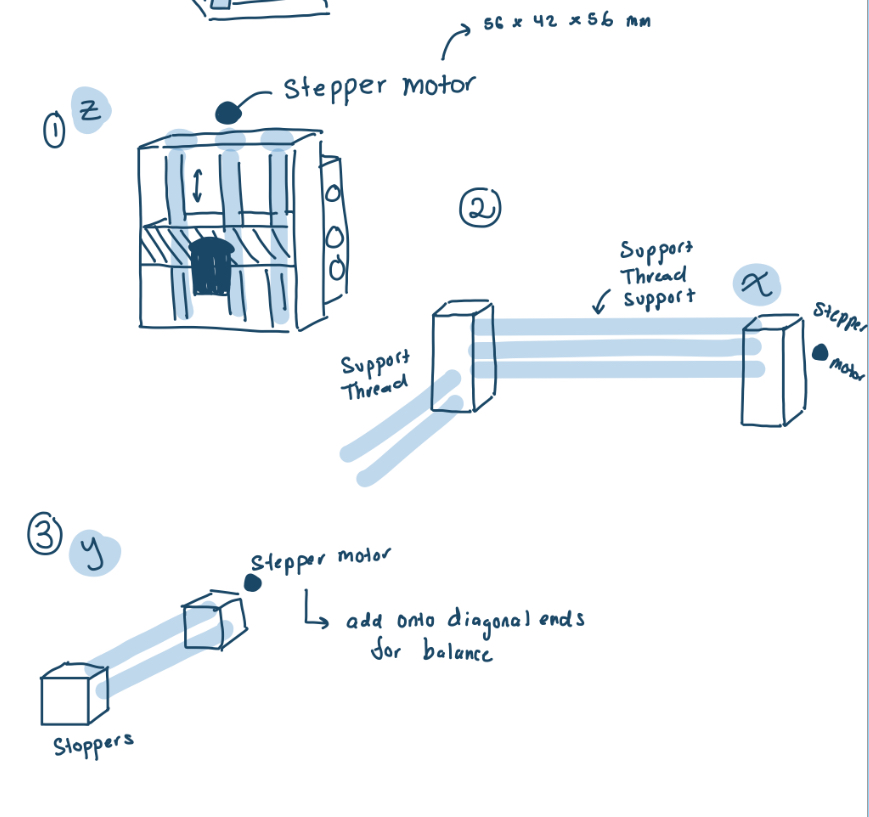 56 x 42 x 56 mm
Stepper motor
① Z
②
Support
Thread
Support
x
Stepper
motor
Support
Thread
③ y
Stepper motor
↳ add onto diagonal ends
for balance
Stoppers